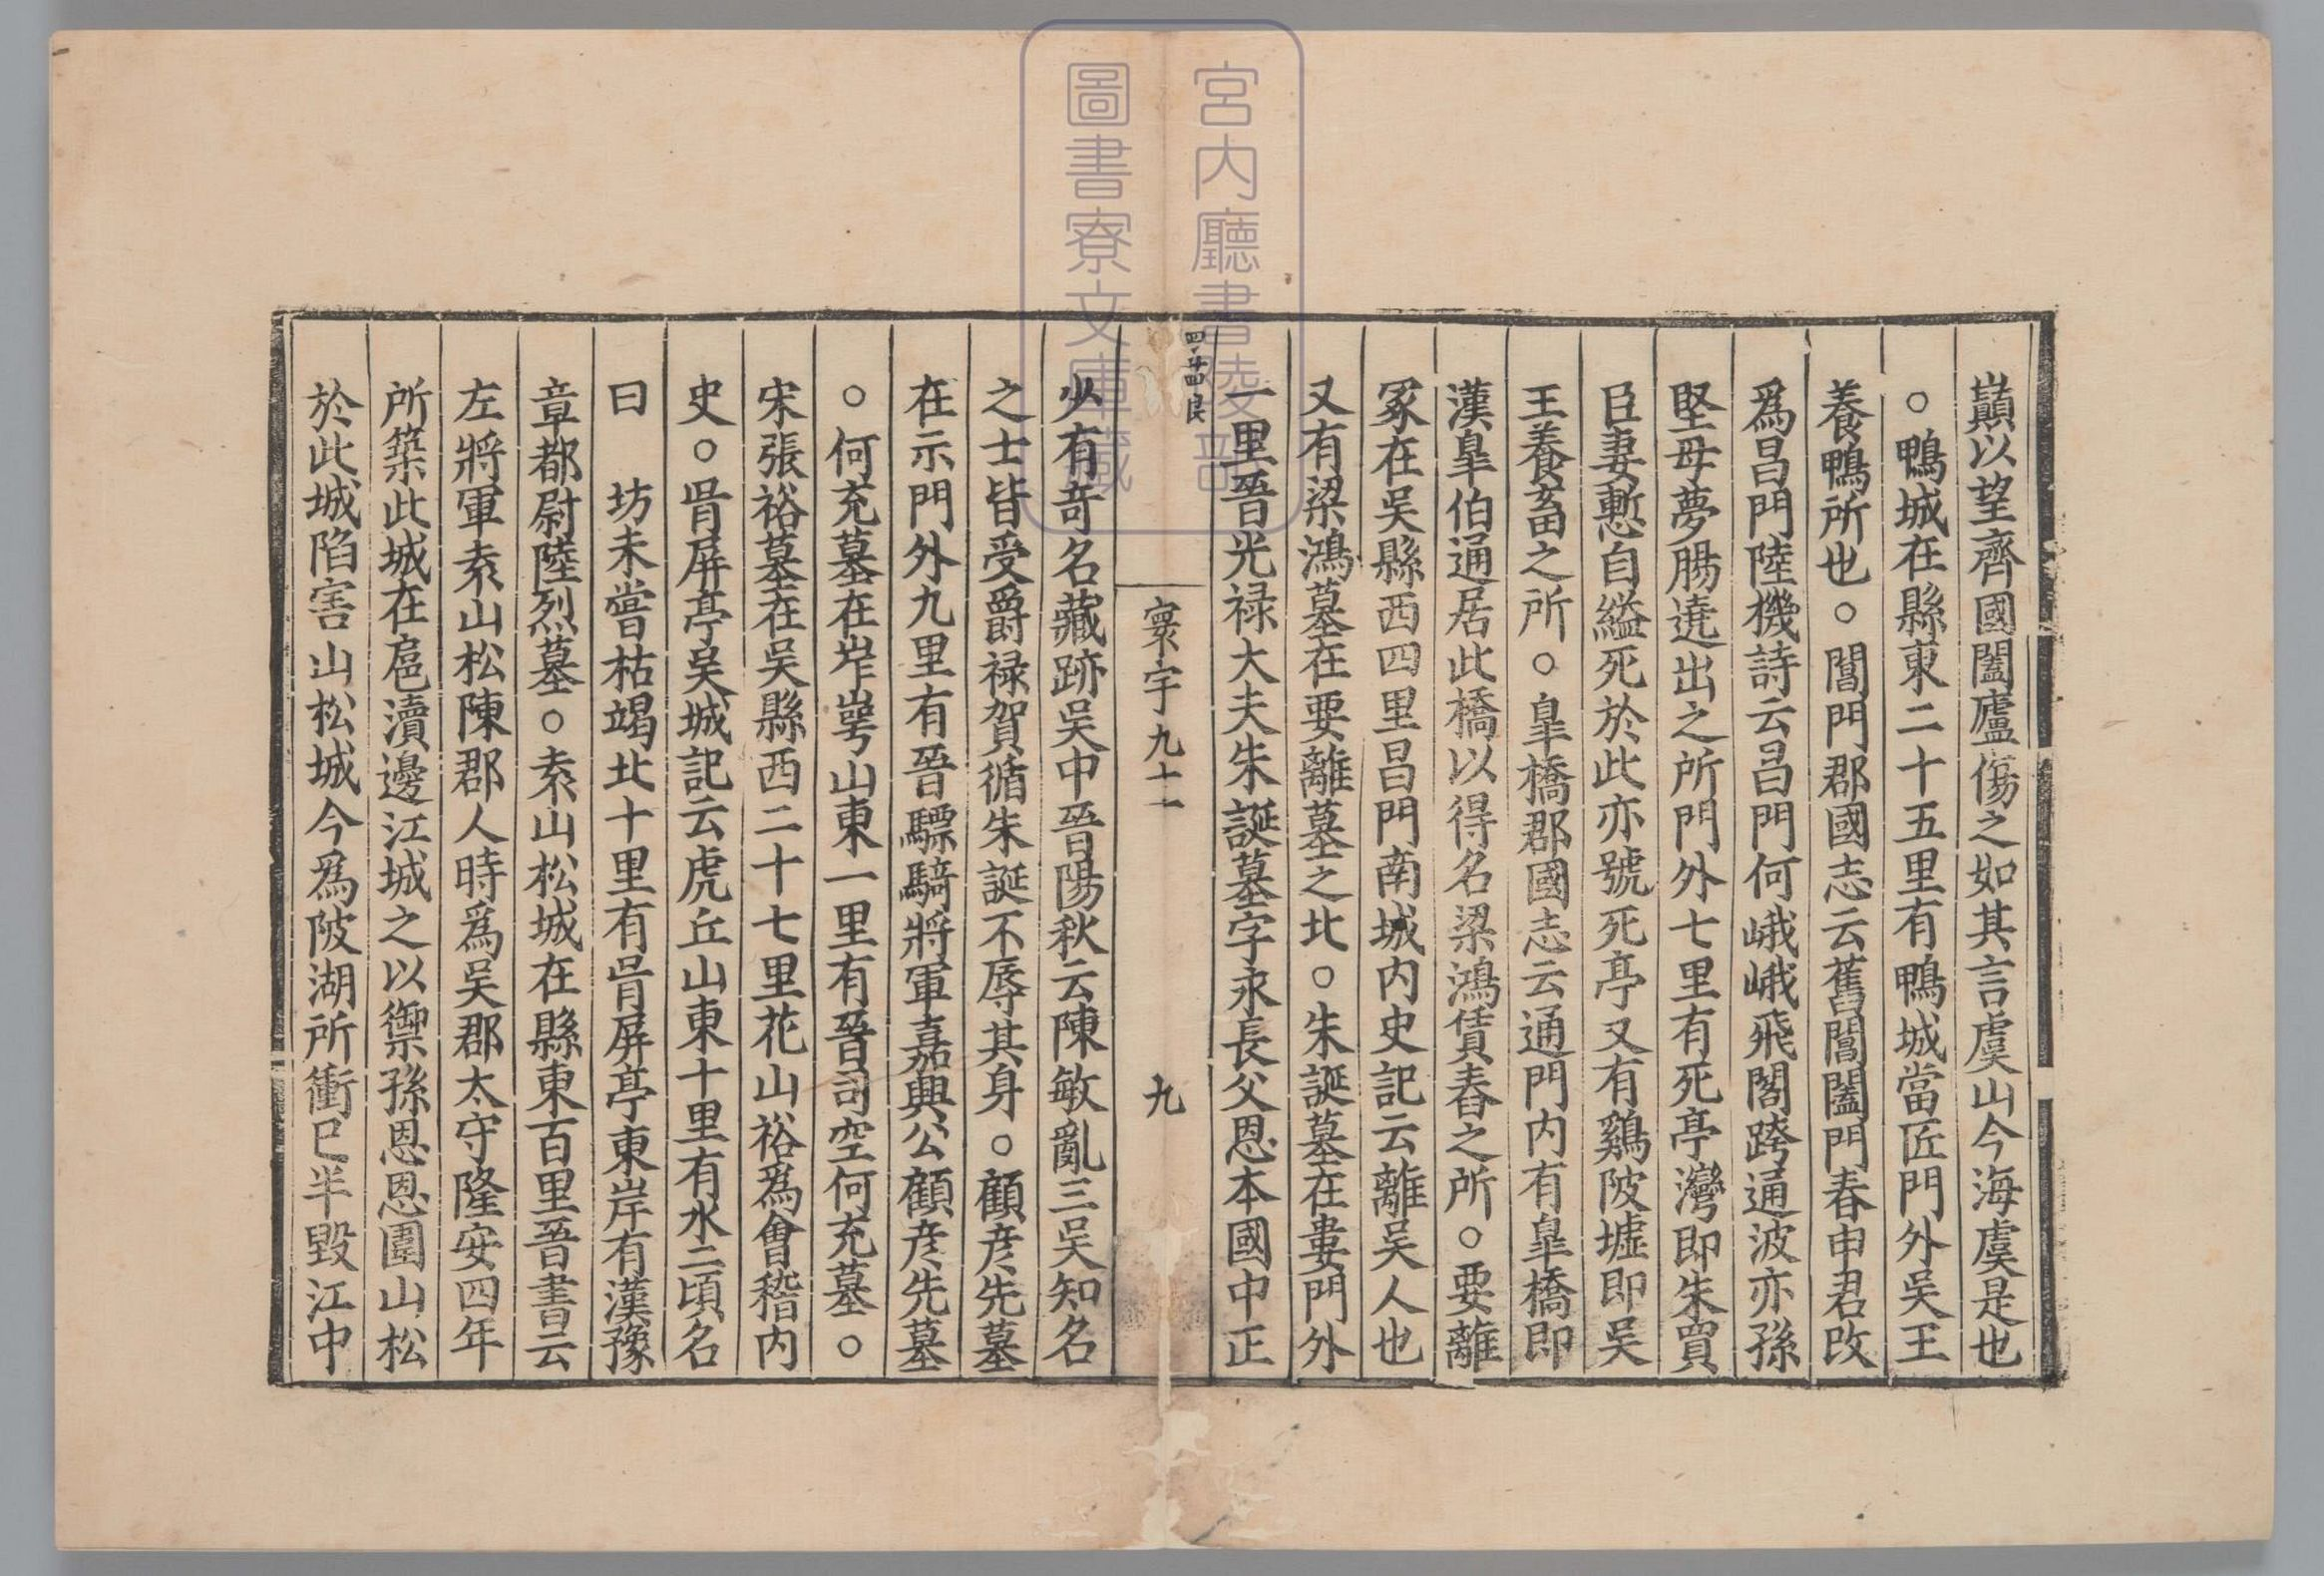 巔以望齊國闔廬傷之如其言虞山今海虞是也
○鴨城在縣東二十五里有鴨城當匠門外吳王
養鴨所也○閶門郡國志云舊閶闔門春申君改
爲昌門陸機詩云昌門何峨峨飛閣跨通波亦孫
堅母夢腸遶出之所門外七里有死亭灣即朱買
臣妻慙自縊死於此亦號死亭又有鷄陂墟即吳
王養畜之所○皐橋郡國志云通門内有皐橋即
漢皐伯通居此橋以得名梁鴻賃舂之所○要離
冢在吳縣西四里昌門南城内史記云離吳人也
又有梁鴻墓在要離墓之北○朱誕墓在婁門外
一里晉光禄大夫朱誕墓字永長父恩本國中正
寰宇九十一
九
少有奇名藏跡吳中晉陽秋云陳敏亂三吳知名
之士皆受爵禄賀循朱誕不辱其身○顧彦先墓
在示門外九里有晉驃騎將軍嘉興公顧彦先墓
○何充墓在岞崿山東一里有晉司空何充墓○
宋張裕墓在吳縣西二十七里花山裕爲會稽内
史○胥屏亭吳城記云虎丘山東十里有水二頃名
曰　坊未嘗枯竭北十里有胥屏亭東岸有漢豫
章都尉陸烈墓○袁山松城在縣東百里晉書云
左將軍袁山松陳郡人時爲吳郡太守隆安四年
所築此城在扈瀆邊江城之以禦孫恩恩圍山松
於此城陷害山松城今爲陂湖所衝已半毀江中
宮内廳書陵部
圖書寮文庫藏